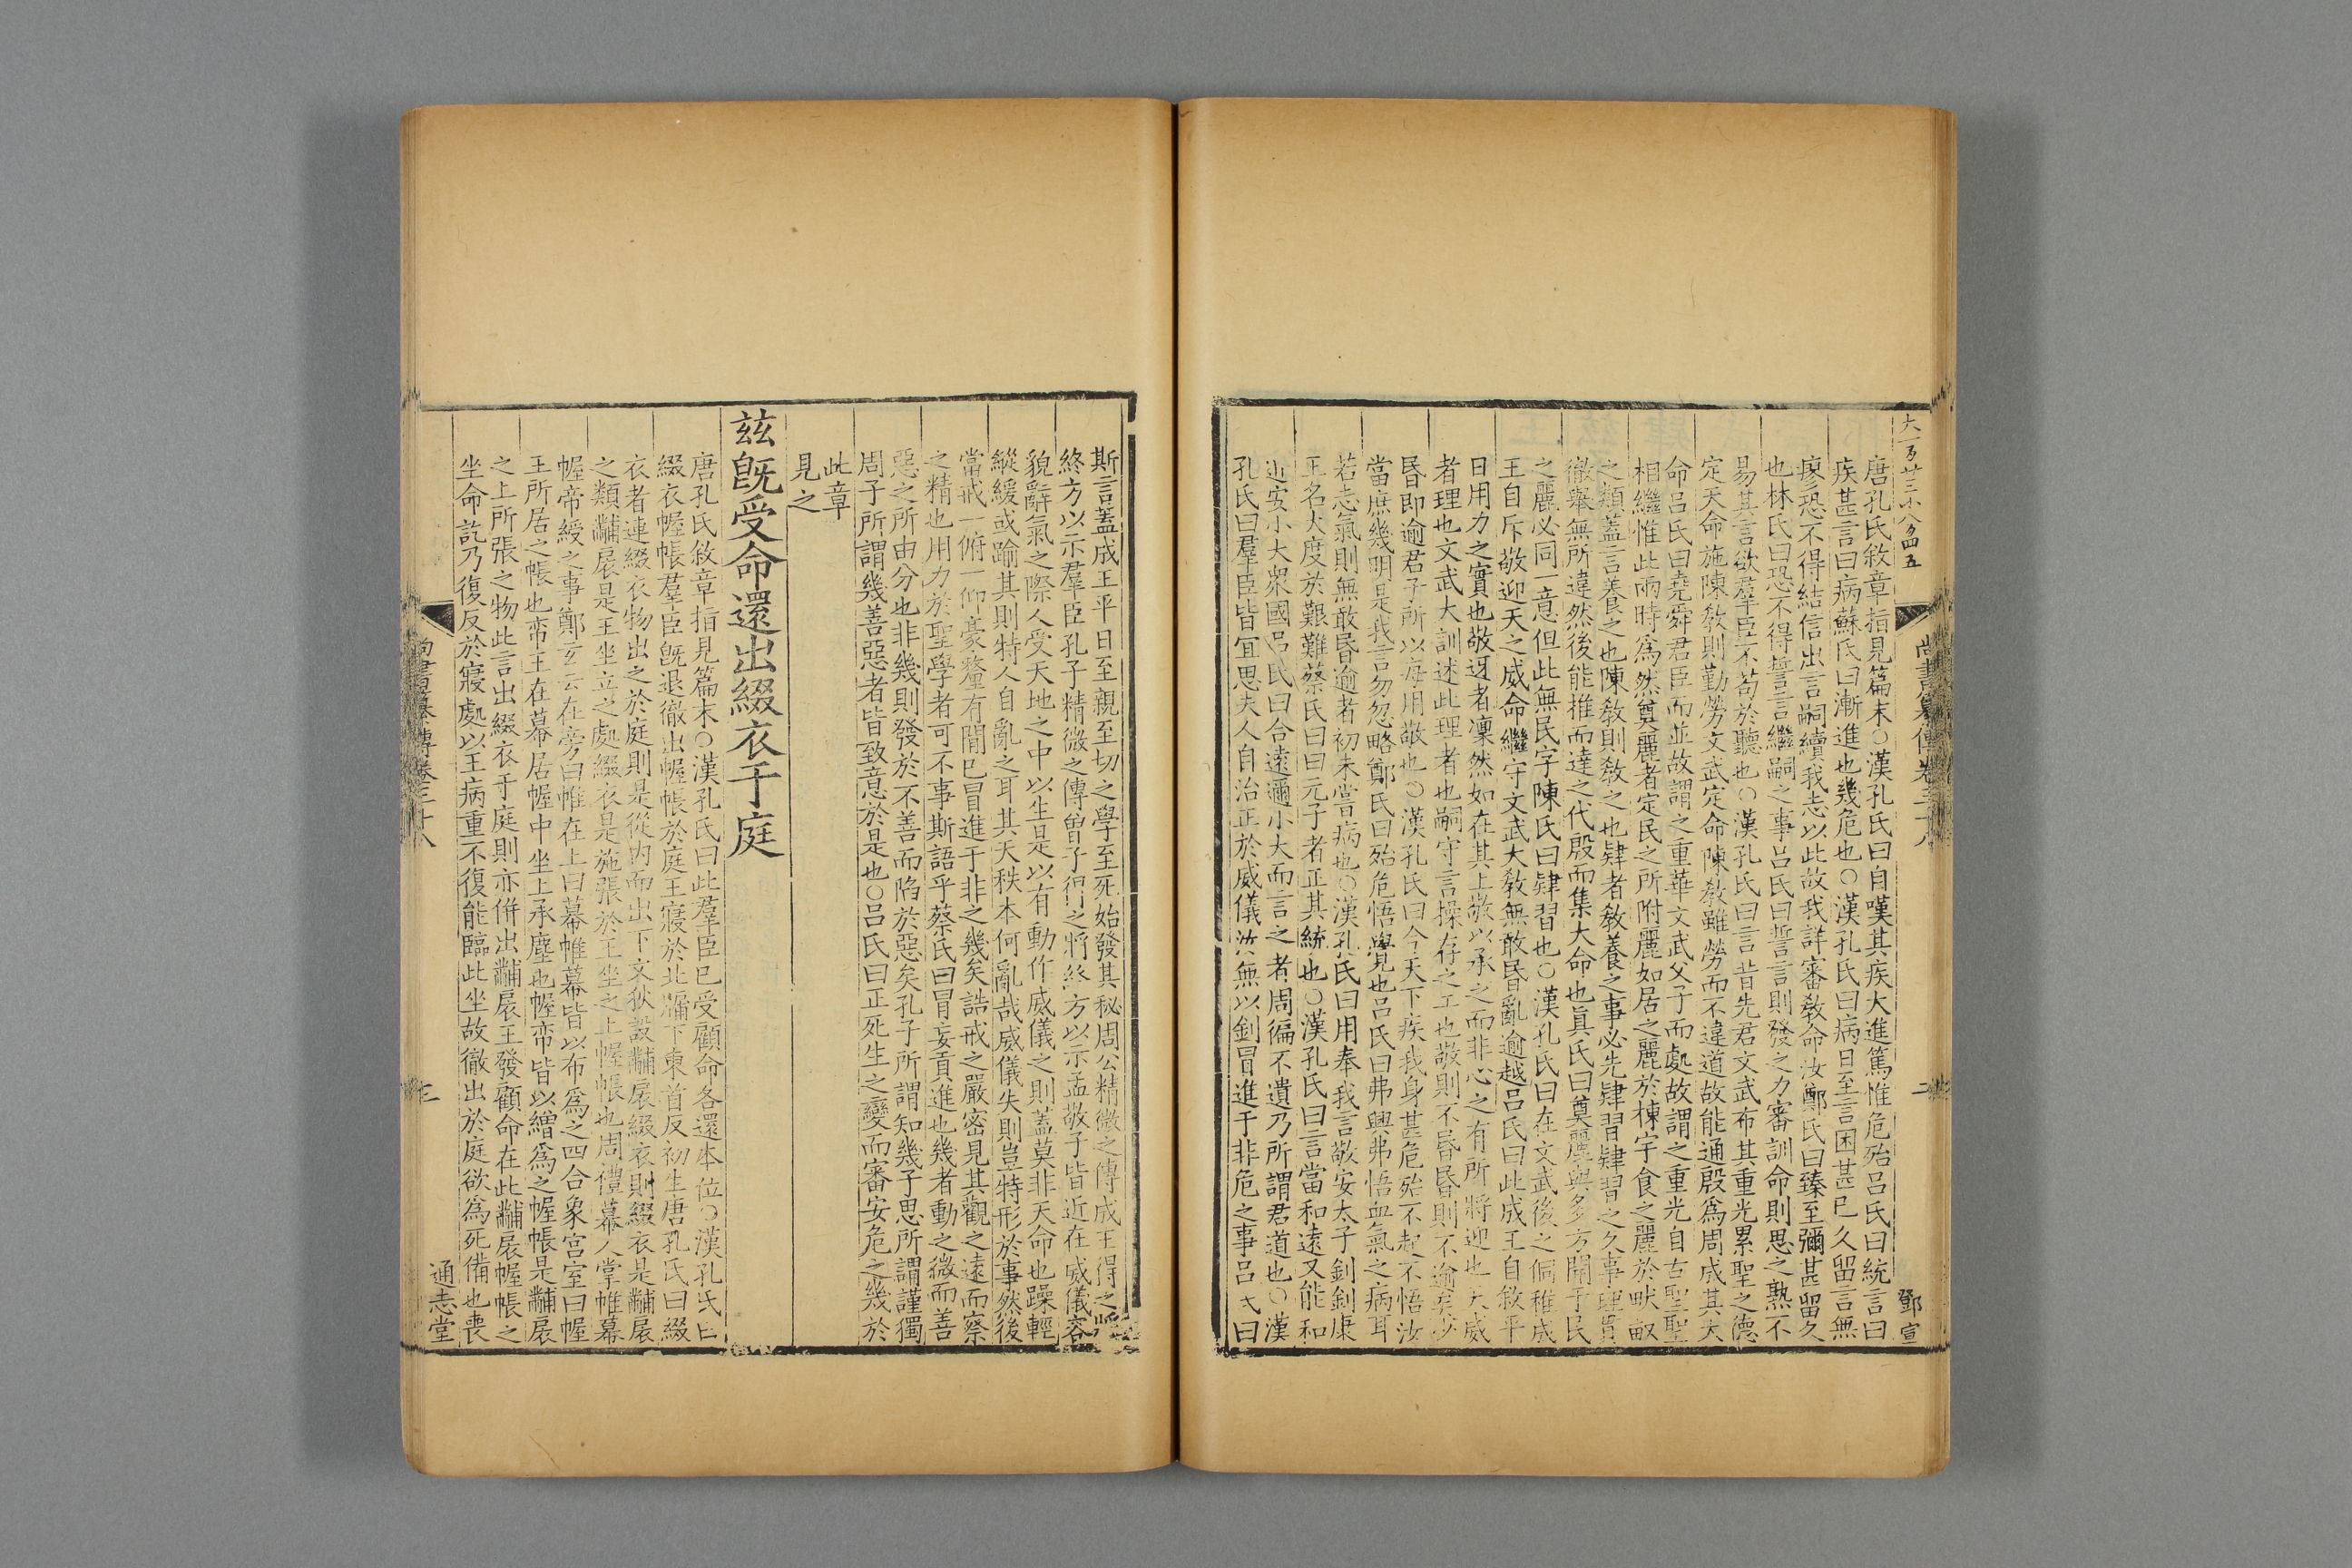 大一百廿三小八百四五
鄧宣
尚書纂傳卷三十八
二
唐孔氏敘章指見篇末○漢孔氏曰自嘆其疾大進篤惟危殆呂氏曰統言曰
疾甚言曰病蘇氏曰漸進也幾危也○漢孔氏曰病日至言困甚已久留言無
瘳恐不得結信出言嗣續我志以此故我詳審教命汝鄭氏曰臻至彌甚留久
也林氏曰恐不得誓言繼嗣之事呂氏曰誓言則發之力審訓命則思之熟不
易其言欲羣臣不苟於聽也○漢孔氏曰言昔先君文武布其重光累聖之德
定天命施陳教則勤勞文武定命陳教雖勞而不違道故能通殷為周成其大
命呂氏曰堯舜君臣而並故謂之重華文武父子而處故謂之重光自古聖聖
相繼惟此兩時為然奠麗者定民之所附麗如居之麗於棟宇食之麗於畎畝
之類蓋言養之也陳教則教之也肄者教養之事必先肄習肄習之久事理貫
徹舉無所違然後能推而達之代殷而集大命也真氏曰奠麗與多方開于民
之麗必同一意但此無民字陳氏曰肄習也○漢孔氏曰在文武後之侗稚成
王自斥敬迎天之威命繼守文武大教無敢昏亂逾越呂氏曰此成王自敘平
日用力之實也敬迓者凜然如在其上敬以承之而非心之有所將迎也天威
者理也文武大訓述此理者也嗣守言操存之工也敬則不昏昏則不逾矣少
昏即逾君子所以每用敬也○漢孔氏曰今天下疾我身甚危殆不起不悟汝
當庶幾明是我言勿忽略鄭氏曰殆危悟覺也呂氏曰弗興弗悟血氣之病耳
若志氣則無敢昏逾者初未嘗病也○漢孔氏曰用奉我言敬安太子釗釗康
王名大度於艱難蔡氏曰曰元子者正其統也○漢孔氏曰言當和遠又能和
近安小大眾國呂氏曰合遠邇小大而言之者周徧不遺乃所謂君道也○漢
孔氏曰羣臣皆宜思夫人自治正於威儀汝無以釗冒進于非危之事呂氏曰
斯言蓋成王平日至親至切之學至死始發其秘周公精微之傳成王得之將
終方以示羣臣孔子精微之傳曾子得之將終方以示孟敬子皆近在威儀容
貌辭氣之際人受天地之中以生是以有動作威儀之則蓋莫非天命也躁輕
縱緩或踰其則特人自亂之耳其天秩本何亂哉威儀失則豈特形於事然後
當戒一俯一仰豪釐有閒已冒進于非之幾矣誥戒之嚴密見其觀之遠而察
之精也用力於聖學者可不事斯語乎蔡氏曰冒妄貢進也幾者動之微而善
惡之所由分也非幾則發於不善而陷於惡矣孔子所謂知幾子思所謂謹獨
周子所謂幾善惡者皆致意於是也○呂氏曰正死生之變而審安危之幾於
此章
見之
茲既受命還出綴衣于庭
唐孔氏敘章指見篇末○漢孔氏曰此羣臣已受顧命各還本位○漢孔氏曰
綴衣幄帳羣臣既退徹出幄帳於庭王寢於北牖下東首反初生唐孔氏曰綴
衣者連綴衣物出之於庭則是從內而出下文狄設黼扆綴衣則綴衣是黼扆
之類黼扆是王坐立之處綴衣是施張於王坐之上幄帳也周禮幕人掌帷幕
幄帟綬之事鄭玄云在旁曰帷在上曰幕帷幕皆以布為之四合象宮室曰幄
王所居之帳也帟王在幕居幄中坐上承塵也幄帟皆以繒為之幄帳是黼扆
之上所張之物此言出綴衣于庭則亦併出黼扆王發顧命在此黼扆幄帳之
坐命訖乃復反於寢處以王病重不復能臨此坐故徹出於庭欲為死備也喪
尚書纂傳卷三十八
三
通志堂